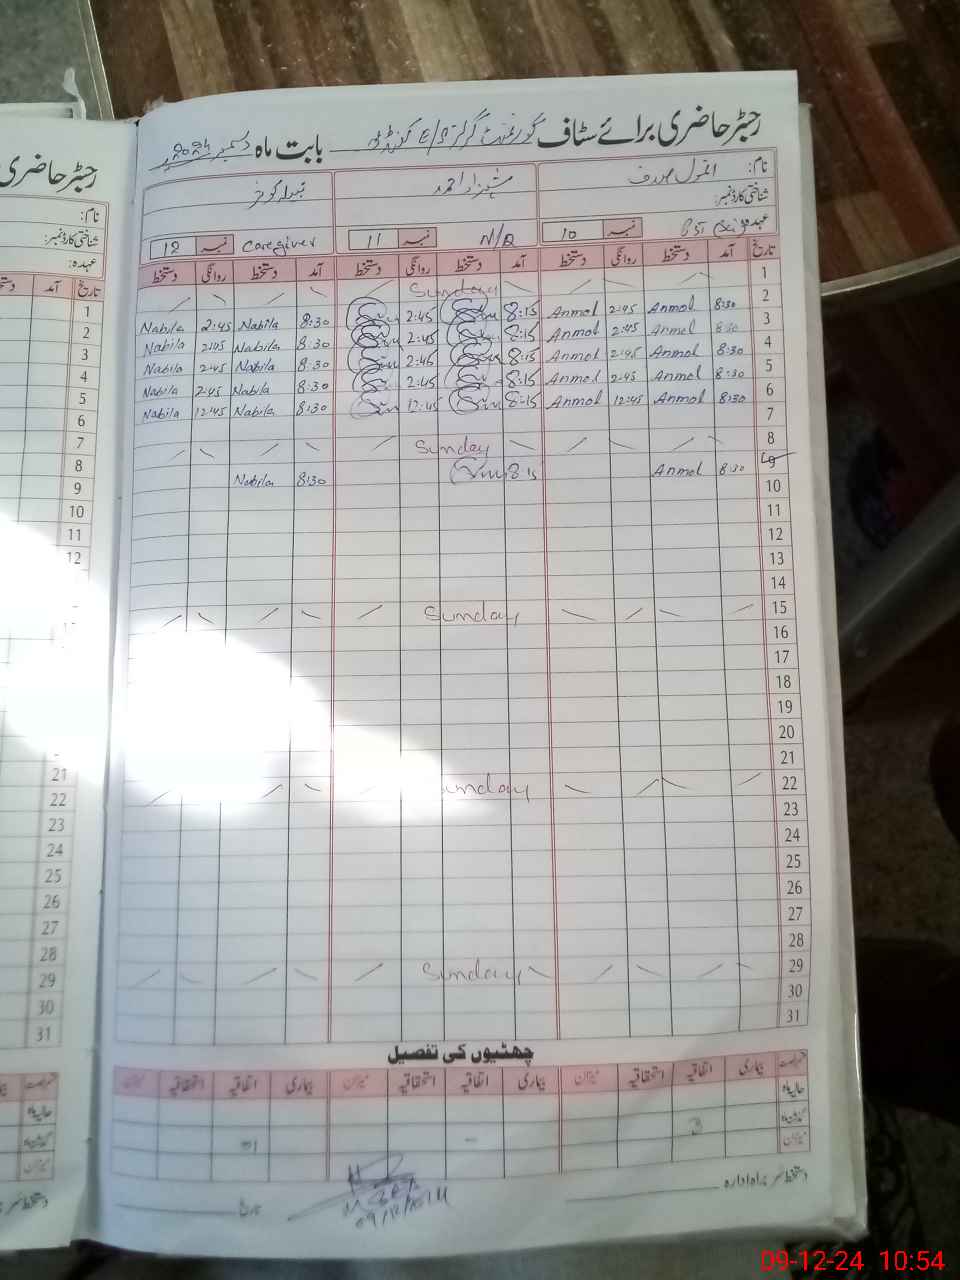 رجسٹر حاضری برائے سٹاف گورنمنٹ گرلز بابت ماہ دسمبر
نام: انمول صدف شہزاد احمد نبیلہ کوثر
شناختی کارڈ نمبر:
عہدہ: نمبر 10 N/Q نمبر 11 Caregiver نمبر 12
تاریخ آمد دستخط روانگی دستخط آمد دستخط روانگی دستخط آمد دستخط روانگی دستخط
1 Sunday
2 8:30 Anmol 2:45 Anmol 8:15 2:45 8:30 Nabila 2:45 Nabila
3 8:30 Anmol 2:45 Anmol 8:15 2:45 8:30 Nabila 2:45 Nabila
4 8:30 Anmol 2:45 Anmol 8:15 2:45 8:30 Nabila 2:45 Nabila
5 8:30 Anmol 2:45 Anmol 8:15 2:45 8:30 Nabila 2:45 Nabila
6 8:30 Anmol 12:45 Anmol 8:15 12:45 8:30 Nabila 12:45 Nabila
7
8 Sunday
9 8:30 Anmol 8:15 8:30 Nabila
10
11
12
13
14
15 Sunday
16
17
18
19
20
21
22 Sunday
23
24
25
26
27
28
29 Sunday
30
31
چھٹیوں کی تفصیل
بیماری اتفاقیہ استحقاقیہ میزان بیماری اتفاقیہ استحقاقیہ میزان بیماری اتفاقیہ استحقاقیہ میزان
حالیہ ماہ
گذشتہ ماہ 3 - 01
میزان
دستخط سربراہ ادارہ تاریخ
09/12/2024
رجسٹر حاضری
نام:
شناختی کارڈ نمبر:
عہدہ:
تاریخ آمد
1
2
3
4
5
6
7
8
9
10
11
12
21
22
23
24
25
26
27
28
29
30
31
09-12-24 10:54